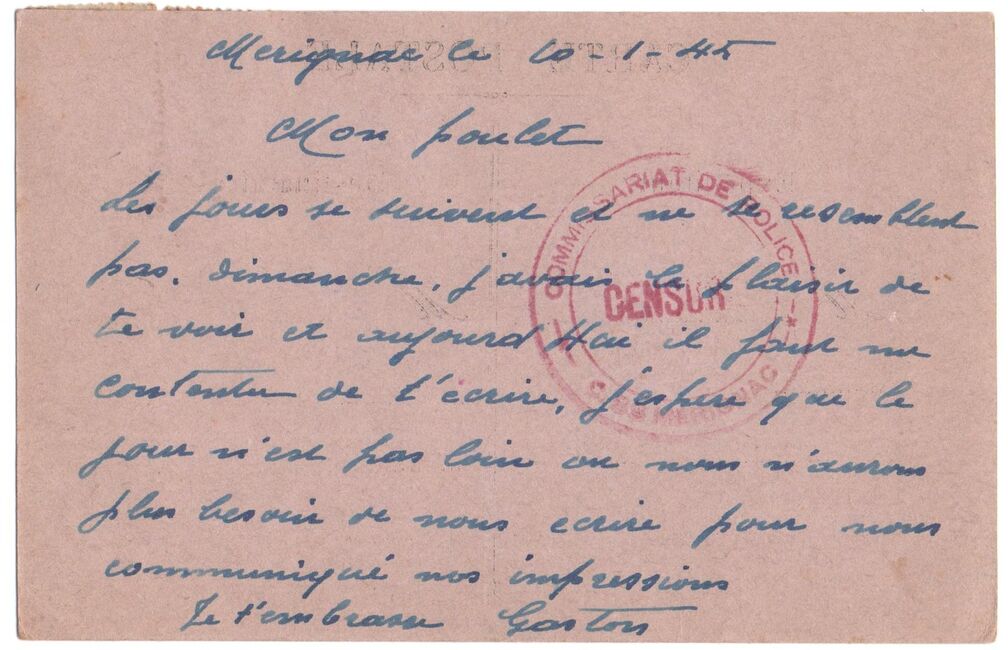 Merignac le 10-1-45
Mon poulet
Les jours se suivent et ne se resemblent
pas, dimanche, j'avais le plaisir de
te voir et aujourd Hui il faut me
contenter de t'écrire, j'espere que le
jour n'est pas loin ou nous n'aurons
plus besoin de nous ecrire pour nous
communiqué nos impressions
Je t'embrasse Gaston
COMMISSARIAT DE POLICE
CENSUR
MERIGNAC
CARTE POSTALE